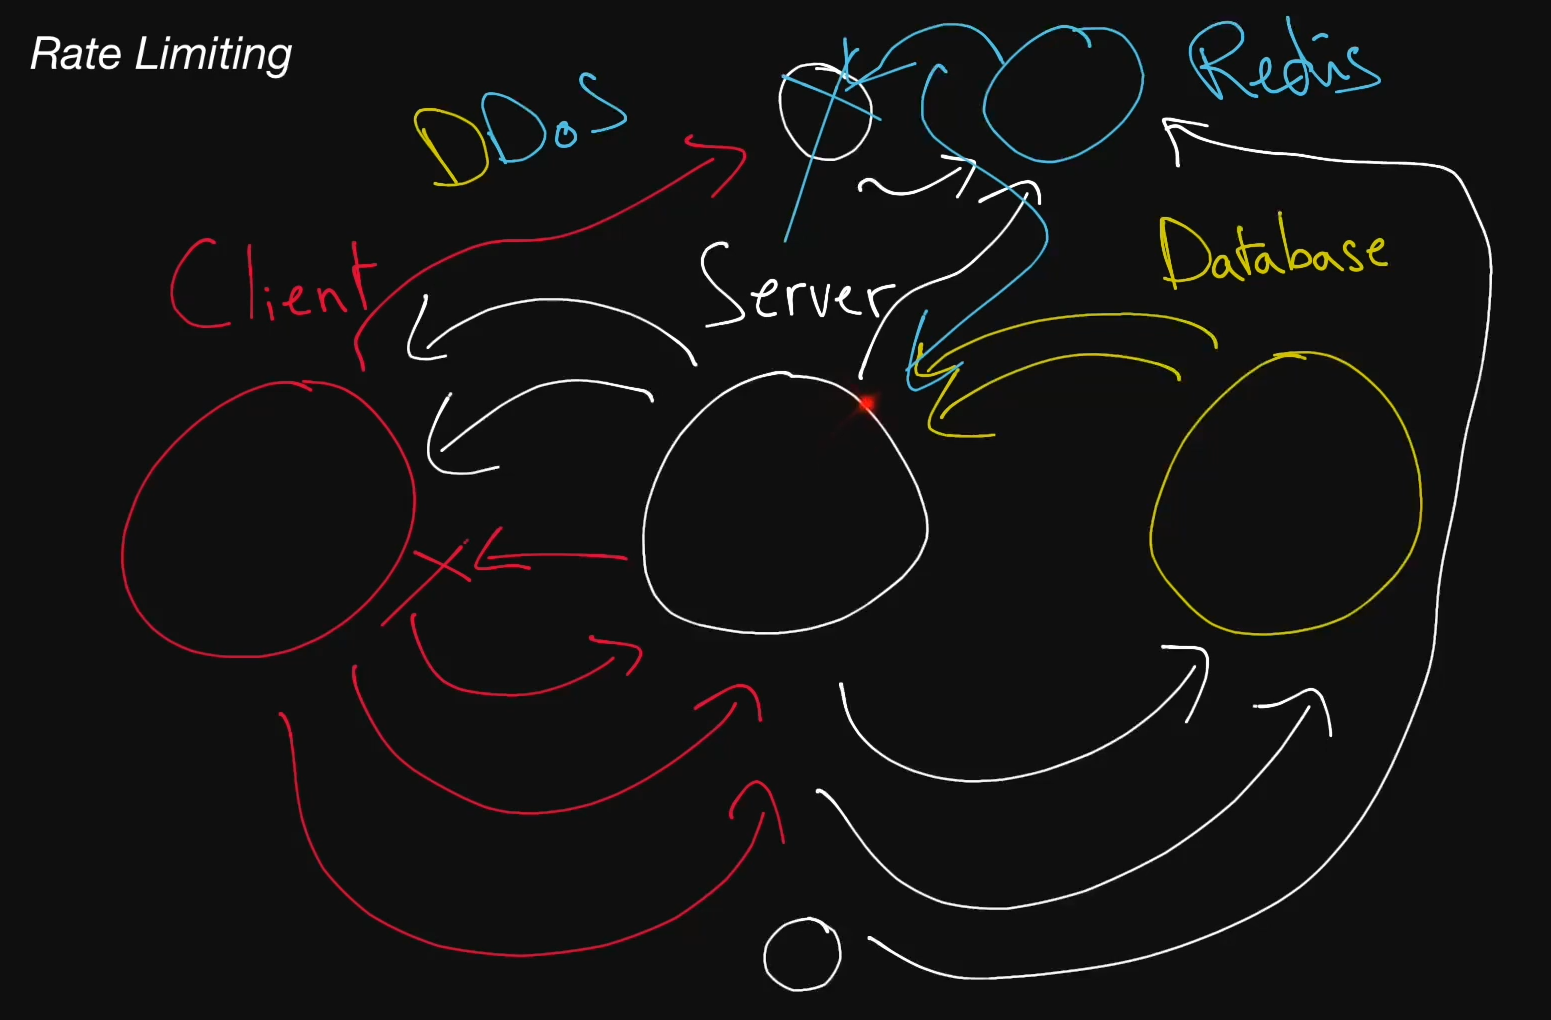 Rate Limiting
DDoS
Redis
Client
Server
Database